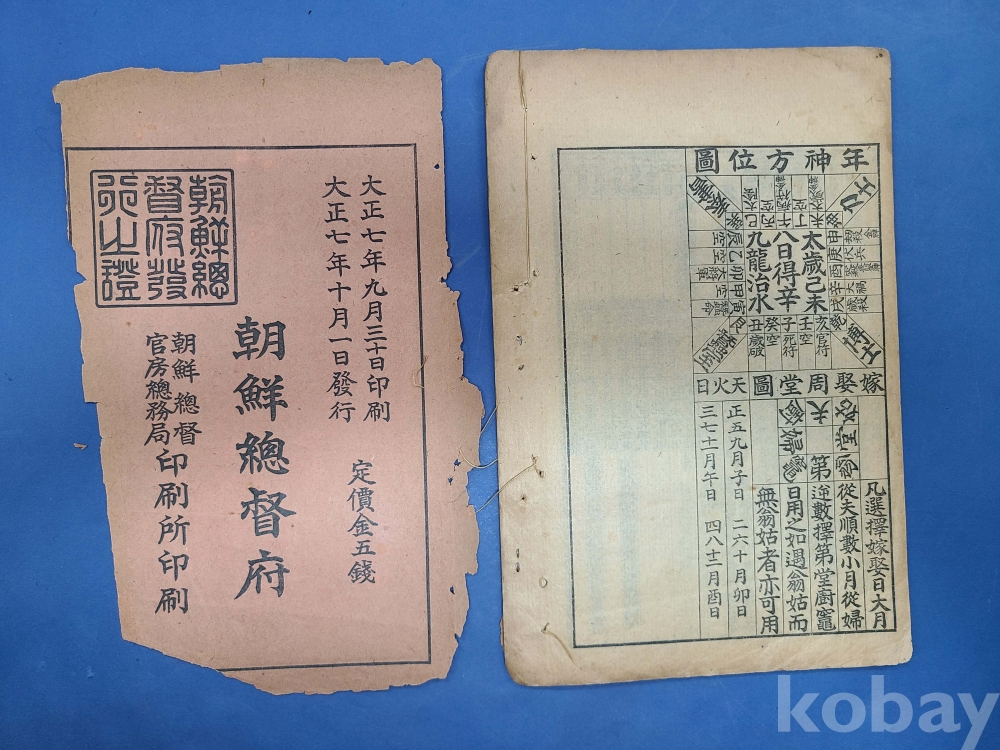 大正七年九月三十日印刷
大正七年十月一日發行
定價金五錢
朝鮮總
督府發
行之證
朝鮮總督府
朝鮮總督
官房總務局
印刷所印刷
年神方位圖
太歲己未
八日得辛
九龍治水
力士
博士
蠶室
奏書
嫁娶周堂圖
天火日
夫
姑
堂
翁
第
竈
婦
廚
凡選擇嫁娶日大月
從夫順數小月從婦
逆數擇第堂廚竈
日用之如遇翁姑而
無翁姑者亦可用
正五九月子日
二六十月卯日
三七十一月午日
四八十二月酉日
kobay